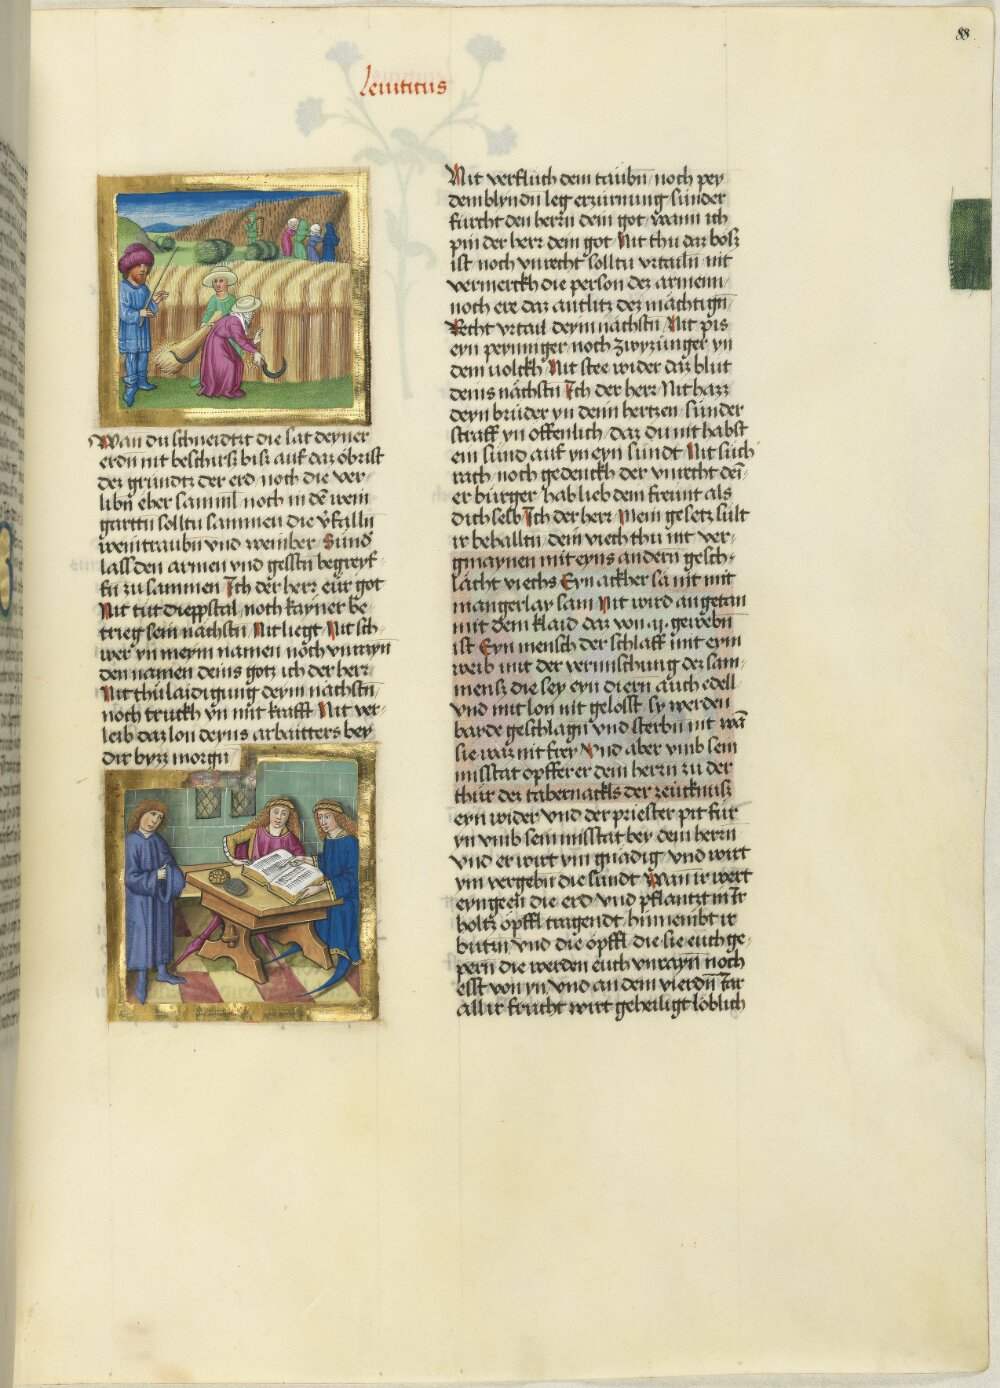 88
leuiticus
Wan du schneidtzt die sat deyner
erdn nit beschirsz bisz auf daz obrist
dez grundtz der erd noch die ver-
libn eher samml noch in dē wein
garttn solltu sammen die v̈falln
weintraubn vnd weinber Sund
lass den armen vnd gesstn begreyf-
fn zu sammen Ich der herz eür got
Nit tüt dieppstal noch kayner be
trieg sein nächstn Nit liegt Nit sch-
wer yn meym namen noch vnrayn
den namen deins gotz ich der herz
Nit thu laidigung deym nachstn
noch truckh yn mit krafft Nit ver-
leib daz lon deyns arbaitters bey
dir bysz morgn
Nit verfluch dem taubn noch pey
dem blyndn leg erzurnung sunder
furcht den herrn dein got wann ich
pin der herz dein got Nit thu daz bösz
ist noch vnrecht solltu vrtailn nit
vermerckh die person dez armenn
noch ere daz antlitz dez mächtign
Recht vrtail deym nächstn Nit pis
eyn peyniger noch zwyzünger yn
dem uolckh Nit stee wider daz blut
deins nächstn Ich der herz Nit hazz
deyn brüder yn deim hertzen sunder
straff yn offenlich daz du nit habst
ein sünd auf yn eyn sündt Nit such
rach noch gedenckh der vnrecht dein̄
er burger hab lieb dein freünt als
dich selb Ich der herz Mein gesetz sült
ir behalltn dein viech thu nit ver-
gmaynen mit eyns andern gesch-
lächt viechs Eyn ackher sä nit mit
mangerlay sam Nit wird angetan
mit dem klaid daz von .ij. gewebn
ist Eyn mensch der schlaff mit eym
weib mit der vermischung dez sam-
mensz die sey eyn diern auch edell
vnd mit lon nit gelosst sy werden
baide geschlagn vnd sterbn nit wā
sie waz nit frey Vnd aber vmb sein
misstat opfferer dem herrn zu der
thür dez tabernackls der zeucknüsz
eyn wider vnd der priester pit für
yn vmb sein misstat bey dem herrn
vnd er wirt ym gnädig vnd wirt
ym vergebn die sündt Wan ir wert
eyngeen die erd vnd pflantzt in Ir
holtz öpffl tragendt hinnembt ir
bützn vnd die öpffl die sie euch ge-
pern die werden euch vnrayn noch
esst von yn vnd an dem vierdn Iar
all ir frucht wirt geheiligt löblich